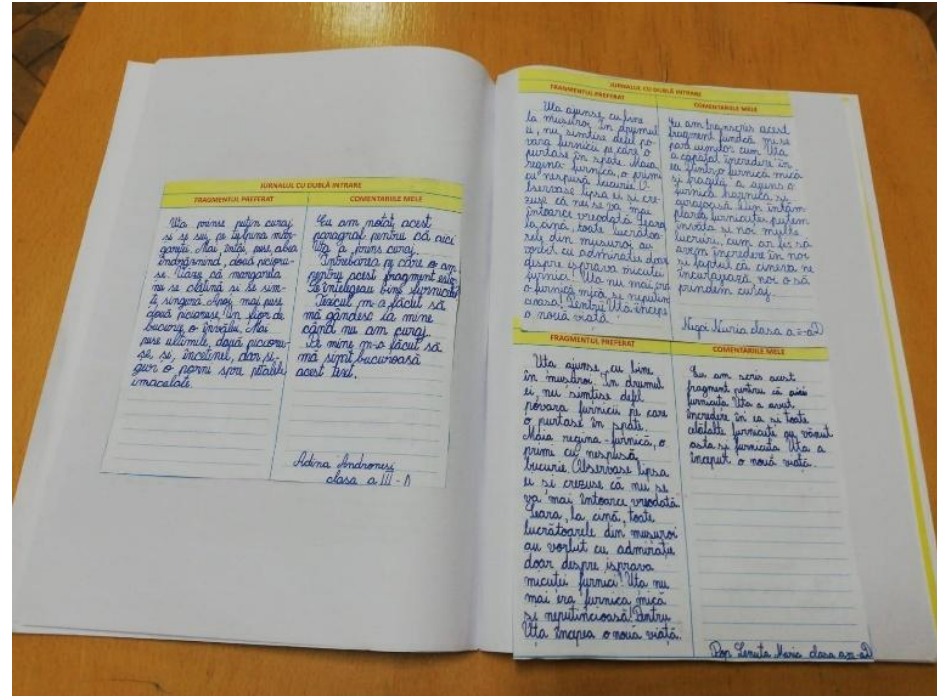 JURNALUL CU DUBLĂ INTRARE
FRAGMENTUL PREFERAT
Uta prinse puțin curaj
și se sui pe tulpina mar-
garetei. Mai întâi, puse abia
îndrăznind, două picioru-
șe. Văzu că margareta
nu se clatină și se sim-
ți singură. Apoi mai puse
două picioruse. Un fior de
bucurie o învălui. Mai
puse ultimele, două picioru-
șe, și, încetinel, dar si-
gur o porni spre petalele
imaculate.
COMENTARIILE MELE
Eu am notat acest
paragraf pentru că aici
Uta a prins curaj.
Întrebarea pe care o am
pentru acest fragment este:
Se înțelegeau bine furnicile?
Textul m-a făcut să
mă gândesc la mine
când nu am curaj.
Pe mine m-a făcut să
mă simt bucuroasă
acest text.
Adina Andronesi
clasa a III-D
JURNALUL CU DUBLĂ INTRARE
FRAGMENTUL PREFERAT
Uta ajunse cu bine
la mușuroi. În drumul
ei, nu simțise defel po-
vara furnicii pe care o
purtase în spate. Maia
regina-furnică, o primi
cu nespusă bucurie. O-
bservase lipsa ei și cre-
zuse că nu se va mai
întoarce vreodată. Seara,
la cină, toate lucrătoa-
rele din mușuroi au
vorbit cu admirație doar
despre isprava micuței
furnici! Uta nu mai era
o furnică mică și neputin-
cioasă! Pentru Uta începe
o nouă viață.
COMENTARIILE MELE
Eu am transcris acest
fragment fiindcă mi se
pare uimitor cum Uta
a căpătat încredere în
ea. Dintr-o furnică mică
și fragilă a ajuns o
furnică harnică și
curajoasă. Din întâm-
plarea furnicuței putem
învăța și noi multe
lucruri, cum ar fi: să
avem încredere în noi
și faptul că cineva ne
încurajează, noi o să
prindem curaj.
Nuria clasa a III-aD
FRAGMENTUL PREFERAT
Uta ajunse cu bine
în mușuroi. În drumul
ei, nu simțise defel
povara furnicii pe care
o purtase în spate.
Maia regina-furnică, o
primi cu nespusă
bucurie. Observase lipsa
ei și crezuse că nu se
va mai întoarce vreodată.
Seara, la cină, toate
lucrătoarele din mușuroi
au vorbit cu admirație
doar despre isprava
micuței furnici! Uta nu
mai era furnica mică
și neputincioasă! Pentru
Uta începea o nouă viață.
COMENTARIILE MELE
Eu am scris acest
fragment pentru că aici
furnicuța Uta a avut
încredere în ea și toate
celălalte furnicuțe au văzut
asta și furnicuța Uta a
început o nouă viață.
Pop Lenuța Maria clasa a III-aD